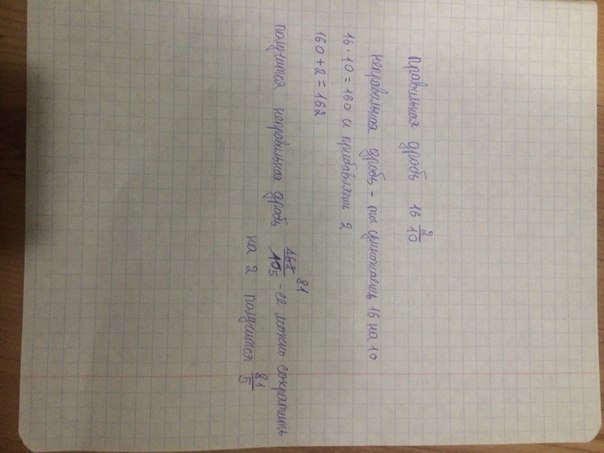 правильная дробь 16 2/10
неправильная дробь - мы умножаем 16 на 10
16·10=160 и прибавляем 2
160+2=162
получится неправильная дробь 162/10 81 5 - её можно сократить
на 2 получится 81/5